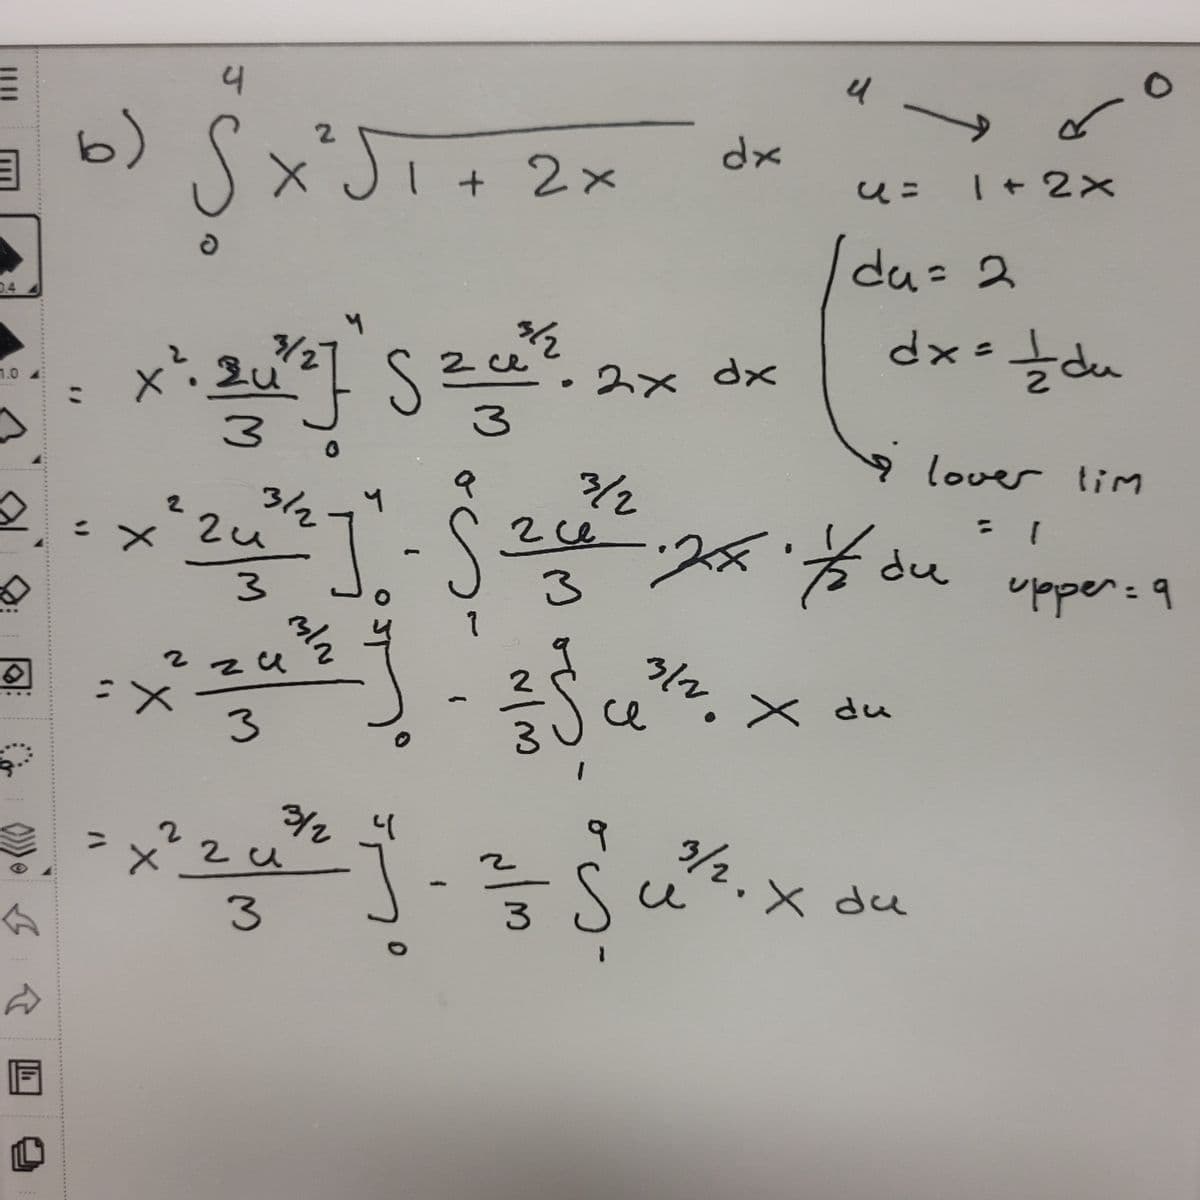 b) ∫₀⁴ x²√(1 + 2x) dx
4 → ↙ 0
u = 1 + 2x
du = 2
dx = 1/2 du
lower lim = 1
upper = 9
= x² · 2u^(3/2)/3 ]₀⁴ ∫ 2u^(3/2)/3 · 2x dx
= x² 2u^(3/2)/3 ]₀⁴ - ∫₁⁹ 2u^(3/2)/3 · 2x · 1/2 du
= x² 2u^(3/2)/3 ]₀⁴ - 2/3 ∫₁⁹ u^(3/2) · x du
= x² 2u^(3/2)/3 ]₀⁴ - 2/3 ∫₁⁹ u^(3/2) · x du
0.4
1.0